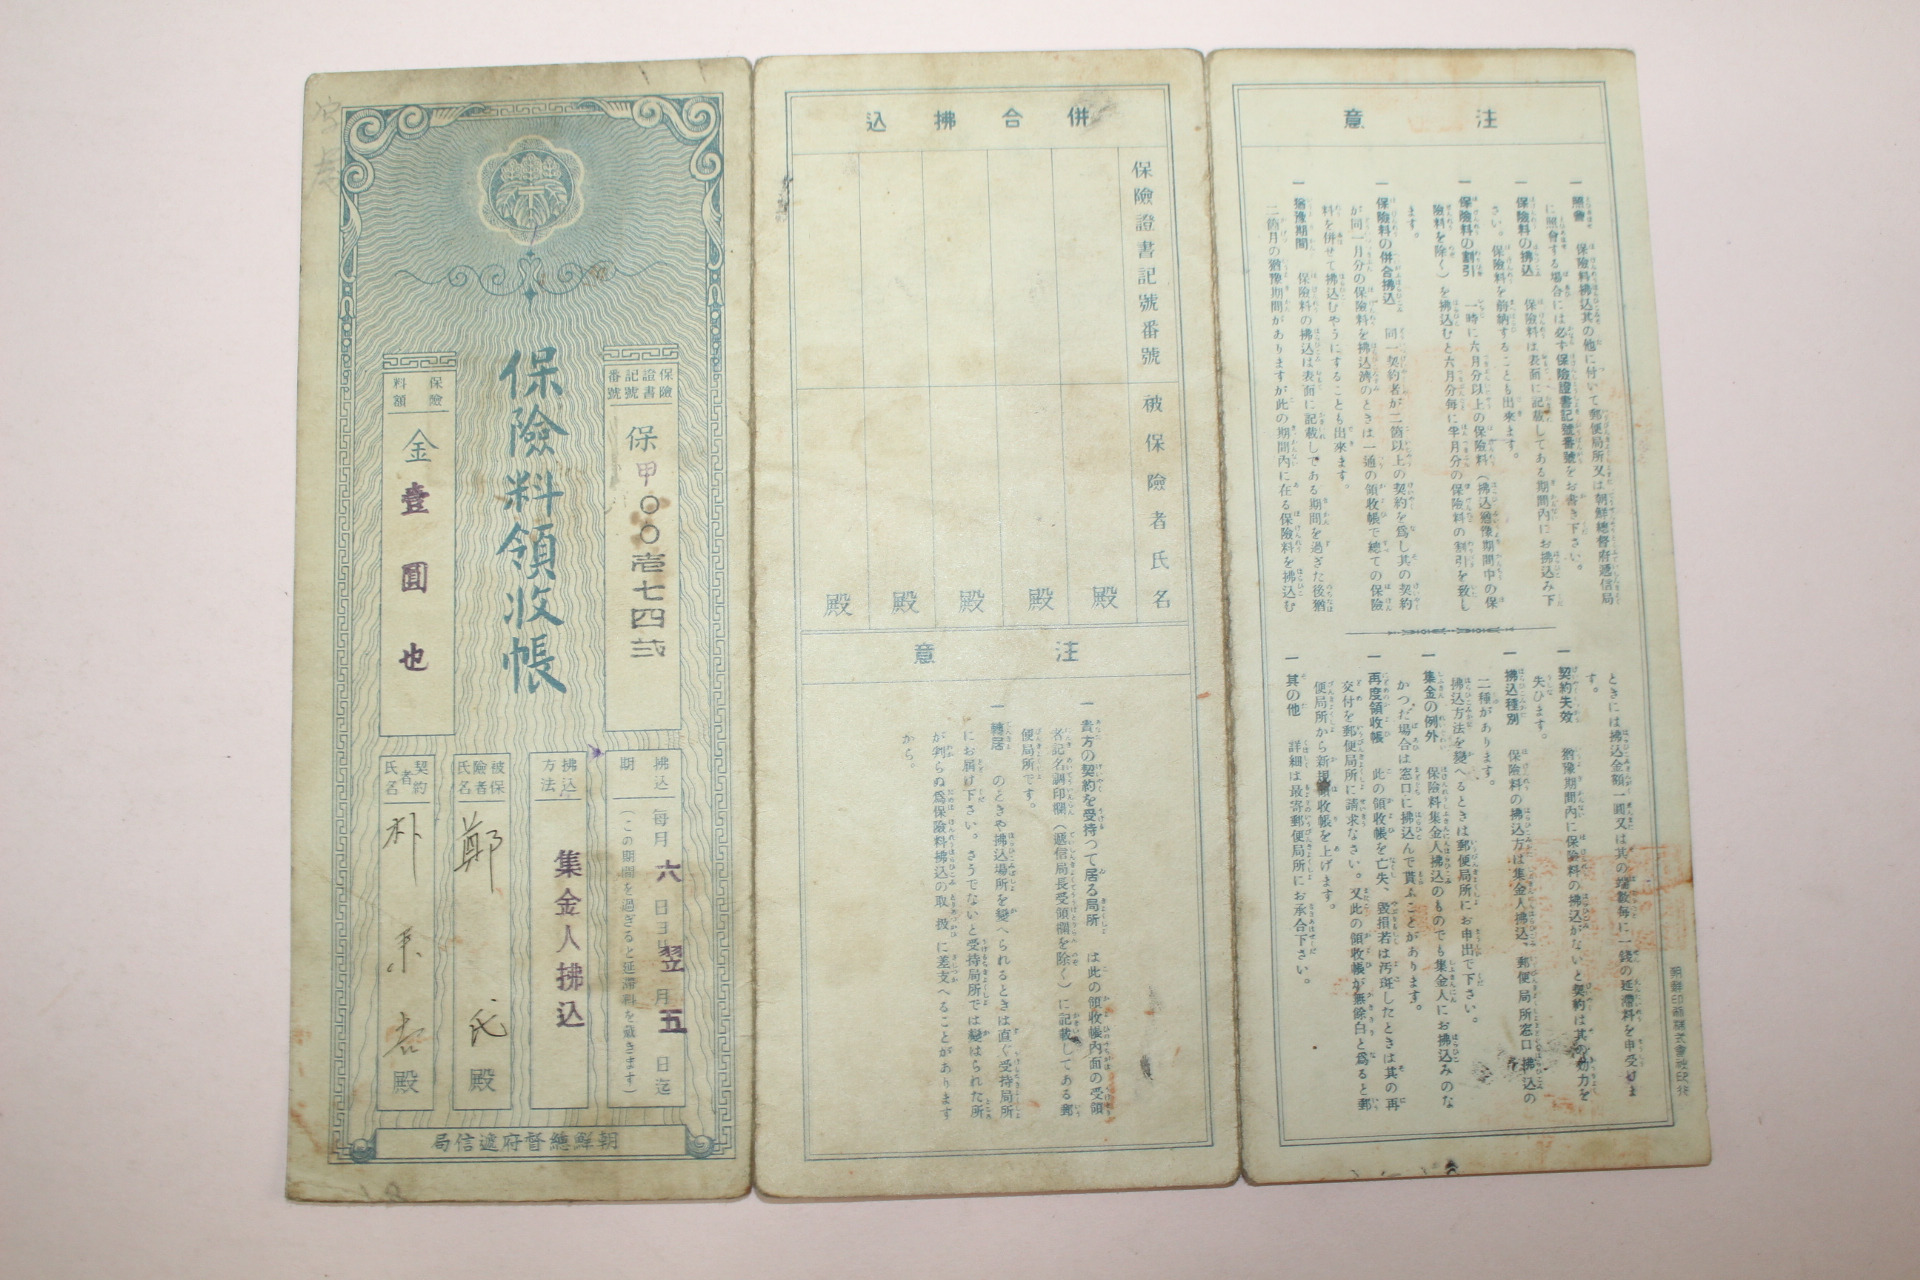 保險料領收帳
保險證書記號番號
保甲〇〇壱七四弐
保險料額
金壹圓也
拂込期
每月六日ヨリ翌月五日迄
(この期間を過ぎると延滯料を戴きます)
拂込方法
集金人拂込
被保險者氏名
鄭 氏 殿
契約者氏名
朴 殿
朝鮮總督府遞信局
併合拂込
保險證書記號番號
被保險者氏名
殿
殿
殿
殿
殿
注意
一 貴方の契約を受持つて居る局所 は此の領收帳內面の受領
者記名調印欄(遞信局長受領欄を除く)に記載してある郵
便局所です。
一 轉居 のときや拂込場所を變へられるときは直ぐ受持局所
にお届け下さい。さうでないと受持局所では變はられた所
が判らぬ爲保險料拂込の取扱に差支へることがあります
から。
注意
一 照會 保險料拂込其の他に付いて郵便局所又は朝鮮總督府遞信局
に照會する場合には必ず保險證書記號番號をお書き下さい。
一 保險料の拂込 保險料は表面に記載してある期間內にお拂込み下
さい。保險料を前納することも出來ます。
一 保險料の割引 一時に六月分以上の保險料(拂込猶豫期間中の保
險料を除く)を拂込むと六月分每に半月分の保險料の割引を致し
ます。
一 保險料の併合拂込 同一契約者が二箇以上の契約を爲し其の契約
が同一月分の保險料を拂込濟のときは一通の領收帳で總ての保險
料を併せて拂込むやうにすることも出來ます。
一 猶豫期間 保險料の拂込は表面に記載してある期間を過ぎた後猶
二箇月の猶豫期間がありますが此の期間內に在る保險料を拂込む
ときには拂込金額一圓又は其の端數每に一錢の延滯料を申受けま
す。
一 契約失效 猶豫期間內に保險料の拂込がないと契約は其の效力を
失ひます。
一 拂込種別 保險料の拂込方は集金人拂込、郵便局所窓口拂込の
二種があります。
拂込方法を變へるときは郵便局所にお申出で下さい。
一 集金の例外 保險料集金人拂込のものでも集金人にお拂込みのな
かつた場合は窓口に拂込んで貰ふことがあります。
一 再度領收帳 此の領收帳を亡失、毀損若は汚斑したときは其の再
交付を郵便局所に請求なさい。又此の領收帳が無餘白と爲ると郵
便局所から新規領收帳を上げます。
一 其の他 詳細は最寄郵便局所にお承合下さい。
朝鮮印刷株式會社印行